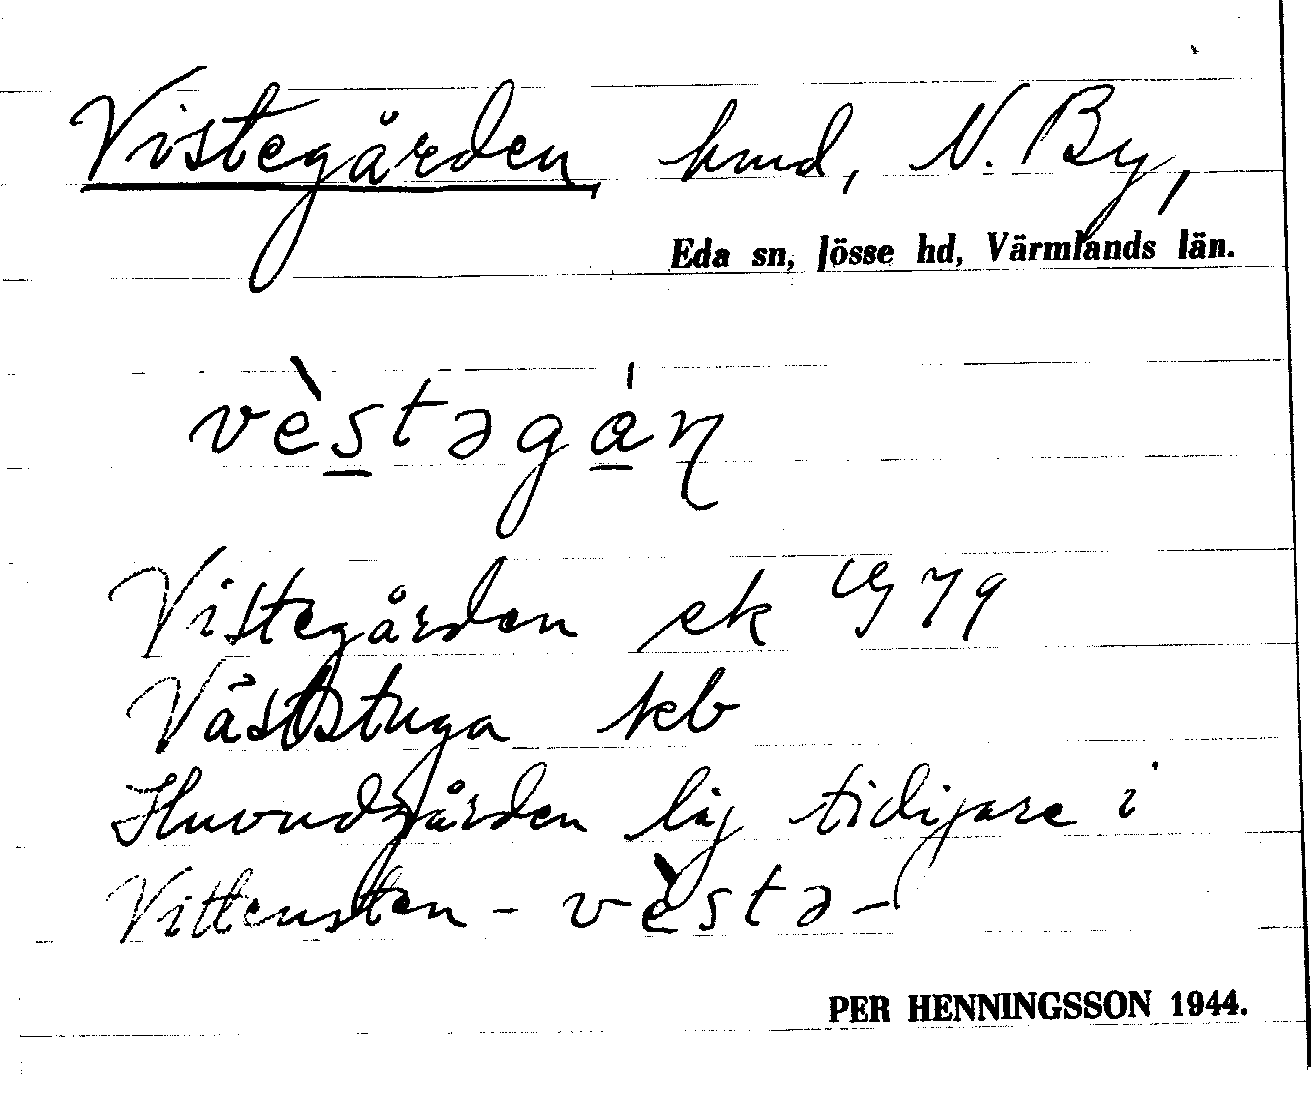 Vistegården hmd, N. By,
Eda sn, Jösse hd, Värmlands län.
vèstəgán
Vistegården ek 79
Väststuga kb
Huvudgården låg tidigare i
Vittensten - vèstə-
PER HENNINGSSON 1944.